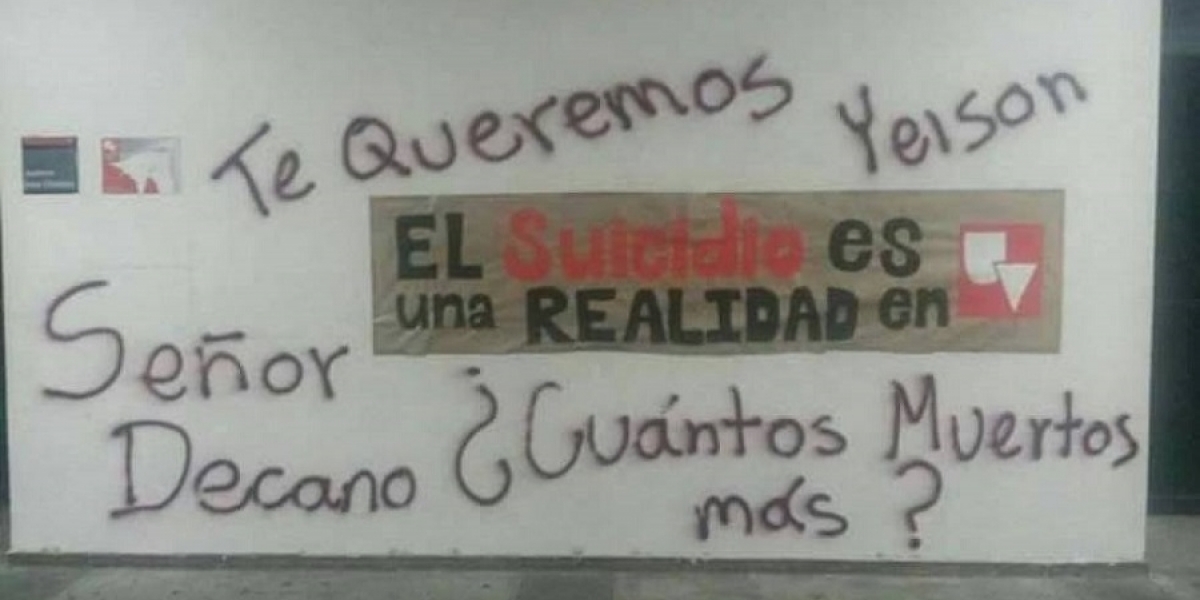 Te Queremos Yeison
EL Suicidio es
una REALIDAD en
Señor
Decano ¿Cuántos Muertos
más?